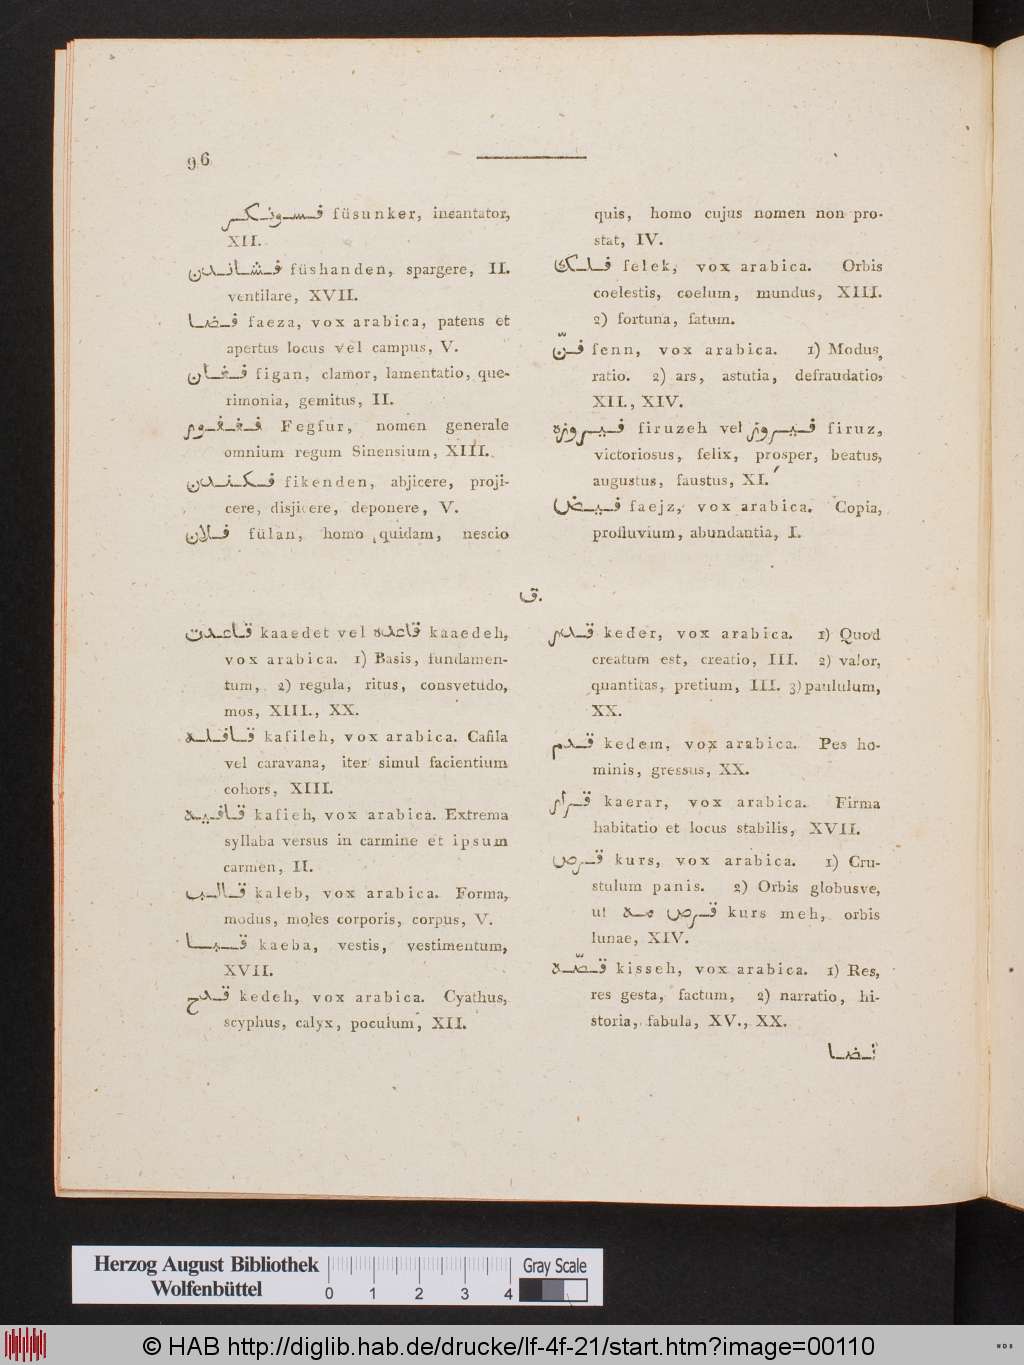 96
فسونكر füsunker, incantator,
XII.
فشاندن füshanden, spargere, II.
ventilare, XVII.
فضا faeza, vox arabica, patens et
apertus locus vel campus, V.
فغان figan, clamor, lamentatio, que-
rimonia, gemitus, II.
فغفور Fegfur, nomen generale
omnium regum Sinensium, XIII.
فكندن fikenden, abjicere, proji-
cere, disjicere, deponere, V.
فلان fülan, homo quidam, nescio
quis, homo cujus nomen non pro-
stat, IV.
فلك felek, vox arabica. Orbis
coelestis, coelum, mundus, XIII.
2) fortuna, fatum.
فنّ fenn, vox arabica. 1) Modus,
ratio. 2) ars, astutia, defraudatio,
XII., XIV.
فيروزه firuzeh vel فيروز firuz,
victoriosus, felix, prosper, beatus,
augustus, faustus, XI.
فيض faejz, vox arabica. Copia,
profluvium, abundantia, I.
ق.
قاعدت kaaedet vel قاعده kaaedeh,
vox arabica. 1) Basis, fundamen-
tum, 2) regula, ritus, consvetudo,
mos, XIII., XX.
قافله kafileh, vox arabica. Cafila
vel caravana, iter simul facientium
cohors, XIII.
قافيه kafieh, vox arabica. Extrema
syllaba versus in carmine et ipsum
carmen, II.
قالب kaleb, vox arabica. Forma,
modus, moles corporis, corpus, V.
قبا kaeba, vestis, vestimentum,
XVII.
قدح kedeh, vox arabica. Cyathus,
scyphus, calyx, poculum, XII.
قدر keder, vox arabica. 1) Quod
creatum est, creatio, III. 2) valor,
quantitas, pretium, III. 3) paululum,
XX.
قدم kedem, vox arabica. Pes ho-
minis, gressus, XX.
قرار kaerar, vox arabica. Firma
habitatio et locus stabilis, XVII.
قرص kurs, vox arabica. 1) Cru-
stulum panis. 2) Orbis globusve,
ut قرص مه kurs meh, orbis
lunae, XIV.
قصّه kisseh, vox arabica. 1) Res,
res gesta, factum, 2) narratio, hi-
storia, fabula, XV., XX.
قضا
Herzog August Bibliothek
Wolfenbüttel
0 1 2 3 4
Gray Scale
© HAB http://diglib.hab.de/drucke/lf-4f-21/start.htm?image=00110